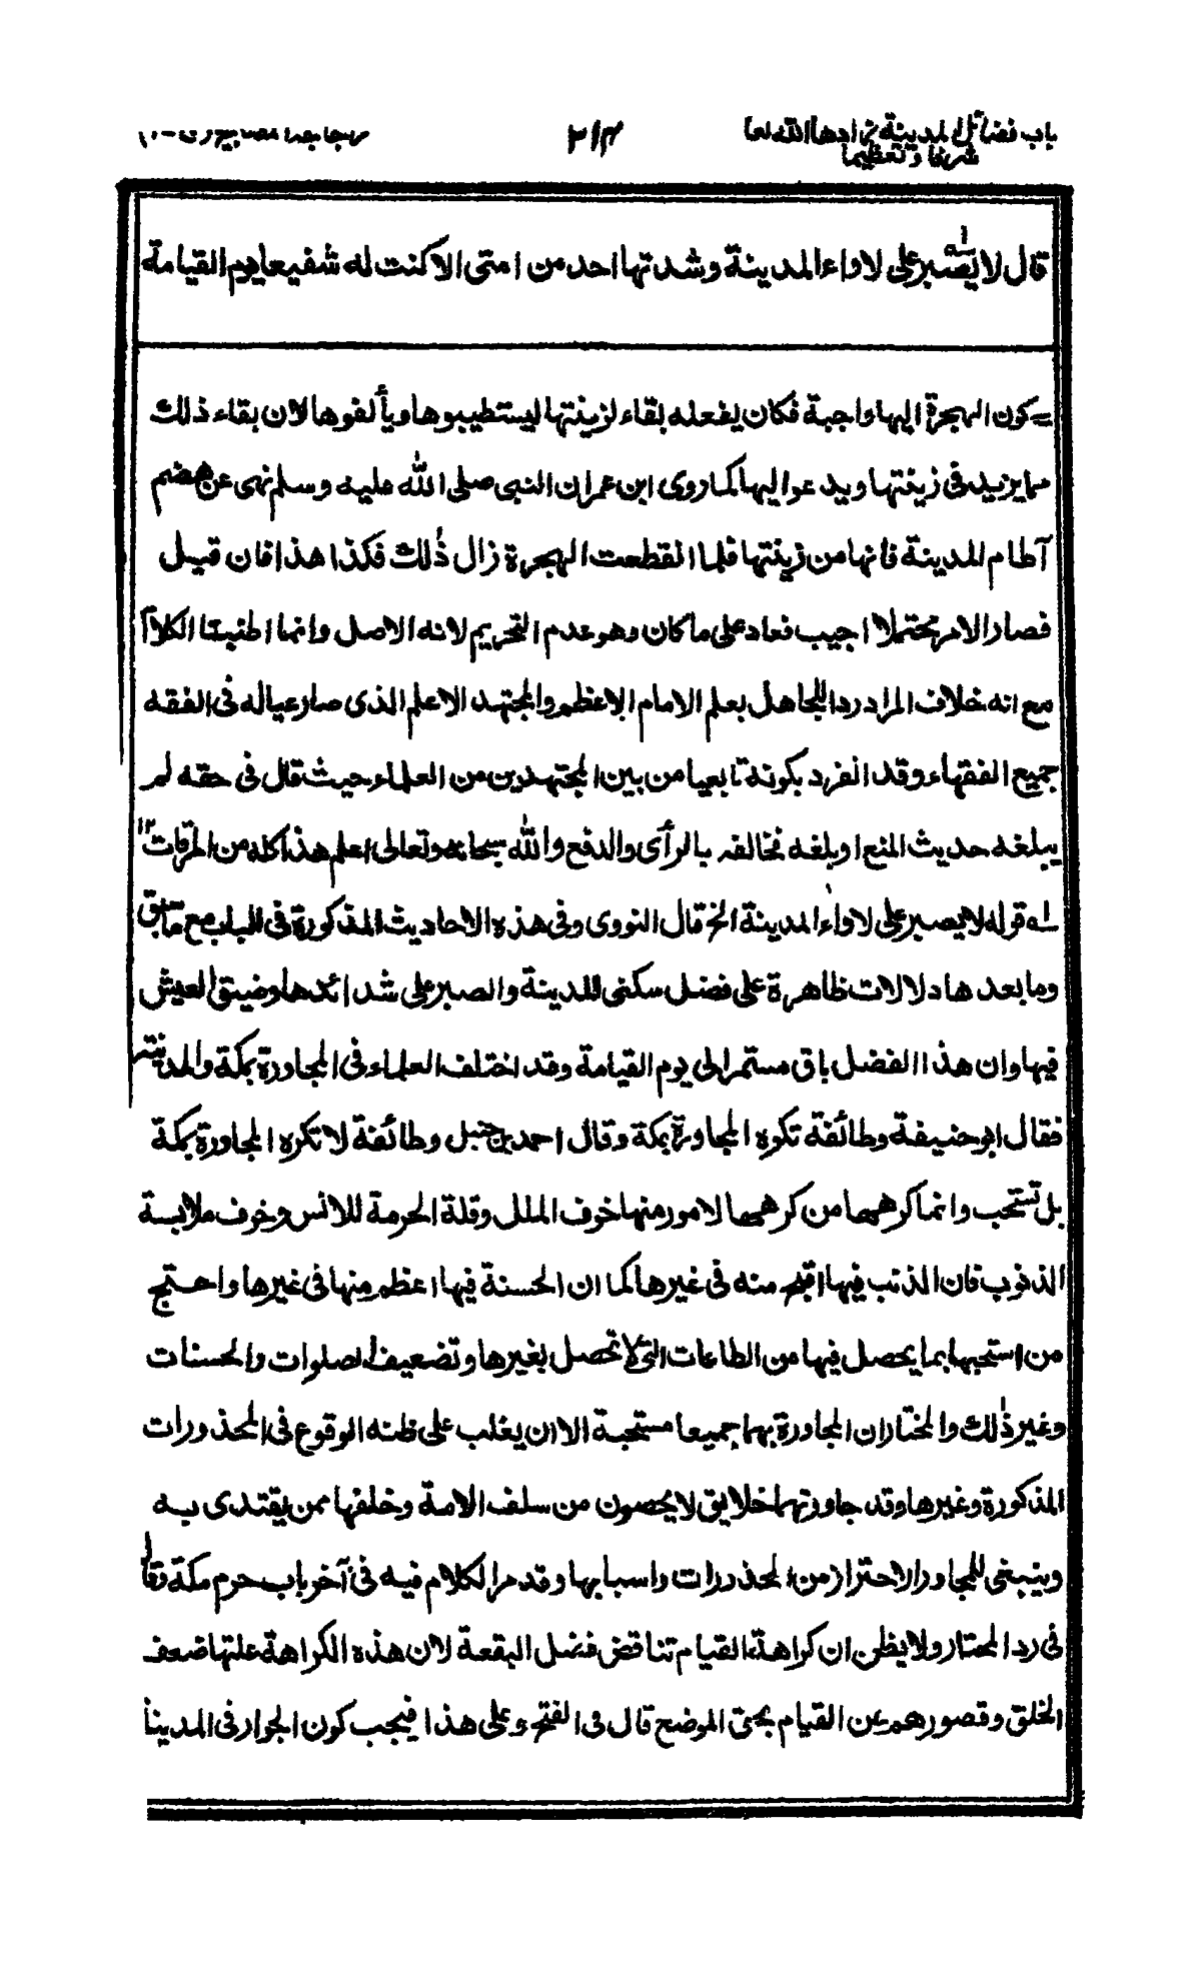 باب فضائل المدينة زادها الله تعا
شرفا وتعظيما
٢١٤
قال لا يصبر على لاواء المدينة وشدتها احد من امتى الا كنت له شفيعا يوم القيامة
كون الهجرة اليها واجبة فكان يفعله بقاء لزينتها ليستطيبوها ويألفوها لان بقاء ذلك
مما يزيد فى زينتها ويدعو اليها كما روى ابن عمر ان النبى صلى الله عليه وسلم نهى عن هضم
آطام المدينة فانها من زينتها فلما انقطعت الهجرة زال ذلك فكذا هذا فان قيل
فصار الامر محتملا اجيب فعاد على ما كان وهو عدم التحريم لانه الاصل وانما اطنبنا الكلام
مع انه خلاف المراد ردا للجاهل بعلم الامام الاعظم والمجتهد الاعلم الذى صار عياله فى الفقه
جميع الفقهاء وقد انفرد بكونه تابعيا من بين المجتهدين من العلماء حيث قال فى حقه لم
يبلغه حديث المنع او بلغه فخالفه بالرأى والدفع والله سبحانه وتعالى اعلم هذا كله من المرقات ١٢
له قوله لا يصبر على لاواء المدينة الخ قال النووى وفى هذه الاحاديث المذكورة فى الباب مع ما سبق
وما بعدها دلالات ظاهرة على فضل سكنى المدينة والصبر على شدائدها وضيق العيش
فيها وان هذا الفضل باق مستمر الى يوم القيامة وقد اختلف العلماء فى المجاورة بمكة والمدينة
فقال ابو حنيفة وطائفة تكره المجاورة بمكة وقال احمد بن حنبل وطائفة لا تكره المجاورة بمكة
بل تستحب وانما كرهها من كرهها لامور منها خوف الملل وقلة الحرمة للانس وخوف ملابسة
الذنوب فان الذنب فيها اقبح منه فى غيرها كما ان الحسنة فيها اعظم منها فى غيرها واحتج
من استحبها بما يحصل فيها من الطاعات التى لا تحصل بغيرها وتضعيف الصلوات والحسنات
وغير ذلك والمختار ان المجاورة بهما جميعا مستحبة الا ان يغلب على ظنه الوقوع فى المحذورات
المذكورة وغيرها وقد جاورتهما خلايق لا يحصون من سلف الامة وخلفها ممن يقتدى به
وينبغى للمجاور الاحتراز من المحذورات واسبابها وقد مر الكلام فيه فى آخر باب حرم مكة وقال
فى رد المحتار ولا يظن ان كراهة القيام تناقض فضل البقعة لان هذه الكراهة علتها ضعف
الخلق وقصورهم عن القيام بحق الموضع قال فى الفتح وعلى هذا فيجب كون الجوار فى المدينة